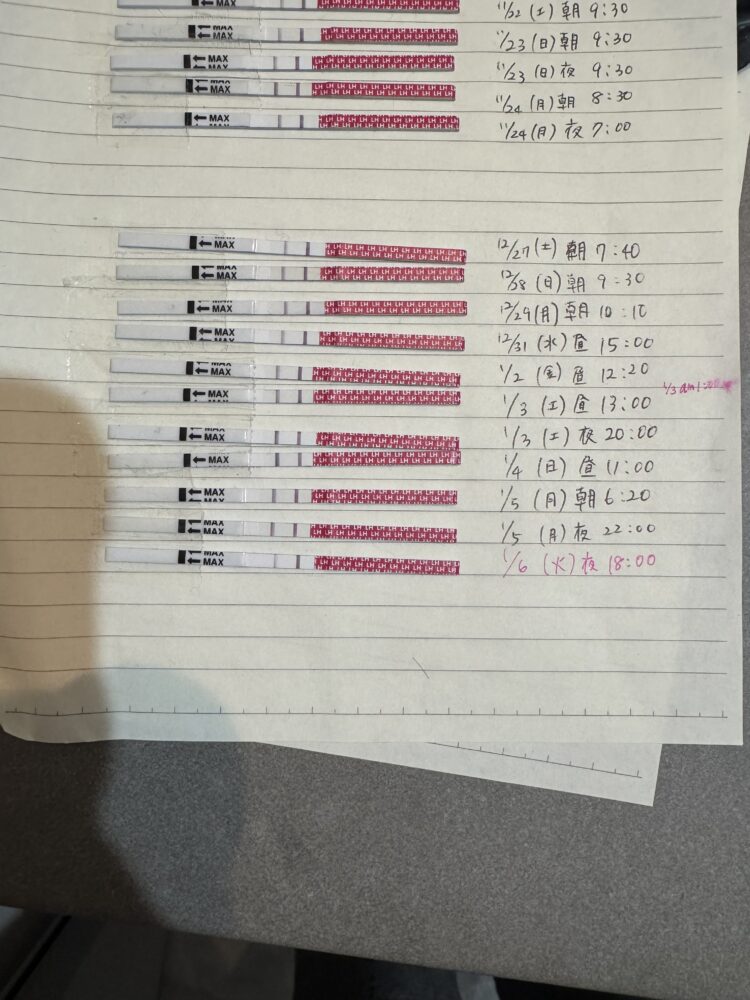 11/22 (土) 朝 9:30
MAX 11/23 (日) 朝 9:30
MAX 11/23 (日) 夜 9:30
MAX 11/24 (月) 朝 8:30
MAX 11/24 (月) 夜 7:00
MAX 12/27 (土) 朝 7:40
MAX 12/28 (日) 朝 9:30
MAX 12/29 (月) 朝 10:10
MAX 12/31 (水) 昼 15:00
MAX 1/2 (金) 昼 12:20
1/3 am 1:00
MAX 1/3 (土) 昼 13:00
MAX 1/3 (土) 夜 20:00
MAX 1/4 (日) 昼 11:00
MAX 1/5 (月) 朝 6:20
MAX 1/5 (月) 夜 22:00
MAX 1/6 (火) 夜 18:00